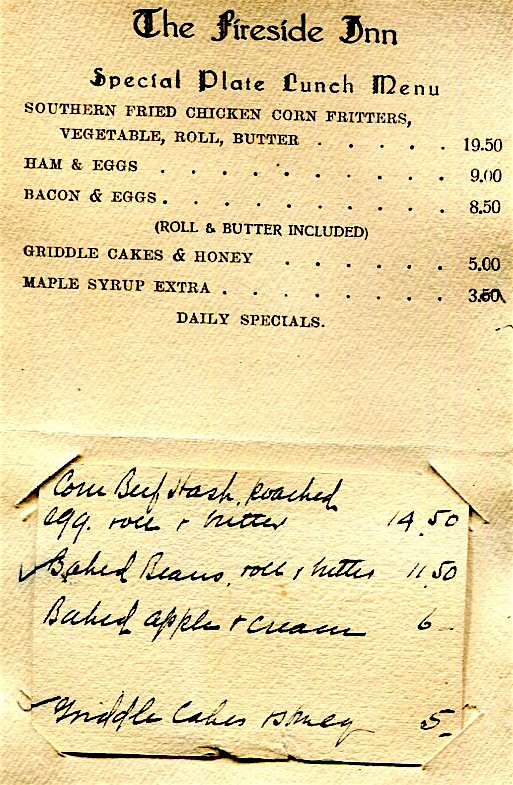 The Fireside Inn
Special Plate Lunch Menu
SOUTHERN FRIED CHICKEN CORN FRITTERS,
VEGETABLE, ROLL, BUTTER . . . . . 19.50
HAM & EGGS . . . . . . . . . . 9.00
BACON & EGGS . . . . . . . . . . 8.50
(ROLL & BUTTER INCLUDED)
GRIDDLE CAKES & HONEY . . . . . . 5.00
MAPLE SYRUP EXTRA . . . . . . . . 3.50
DAILY SPECIALS.
Corn Beef Hash, Poached
egg. roll & butter 14.50
✓ Baked Beans, roll & butter 11.50
Baked apple & cream 6—
✓ Griddle Cakes & Honey 5.